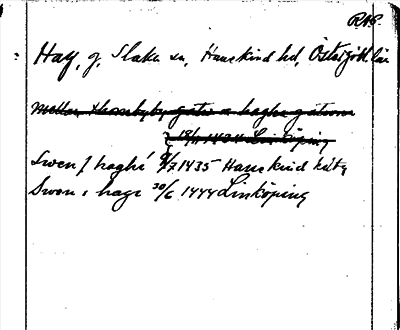 RAP.
Hag, g, Slaka sn, Hanekind hd, Östergötl. län
mellan ... gator oc haghe gatwna
18/11 1434 Linköping
Swen j haghe 9/7 1435 Hanekind hdtg
Swen i hage 30/6 1444 Linköping